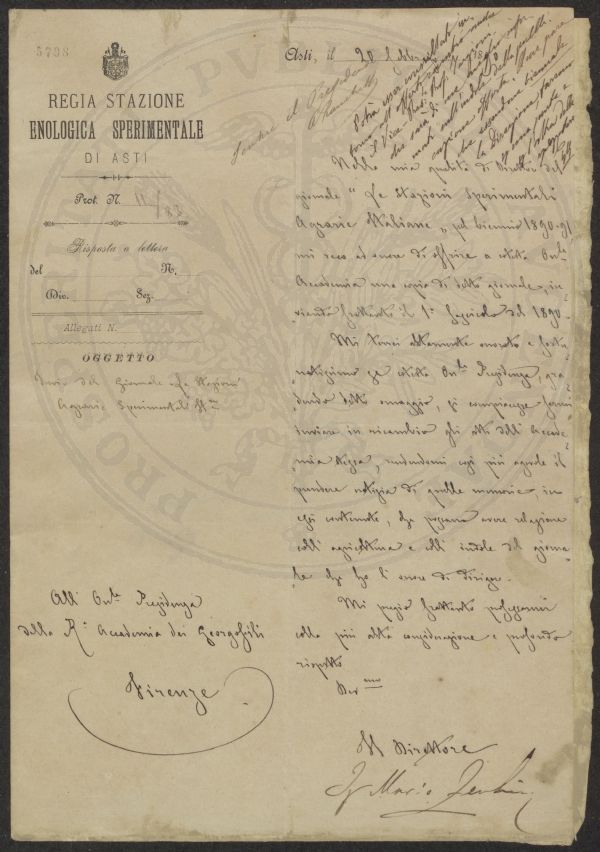 5798
REGIA STAZIONE
ENOLOGICA SPERIMENTALE
DI ASTI
Prot. N. 11/83
Risposta a lettera
del N.
Dic. Sez.
Allegati N.
OGGETTO
Invio del Giornale Le Stazioni
Agrarie Sperimentali It.ne
Asti, il 20 Febbraio
Nella mia qualità di Direttore del
giornale "Le Stazioni Sperimentali
Agrarie Italiane" pel biennio 1890-91
mi reco ad onore di offrire a cotesta On.le
Accademia una copia di detto giornale, in-
viando frattanto il 1° fascicolo del 1890.
Mi terrei altamente onorato e fortu-
natissimo se cotesta On.le Presidenza, gra-
dendo detto omaggio, si compiacesse farmi
inviare in ricambio gli atti dell'Accade-
mia stessa, rendendomi così più agevole il
prendere notizia di quelle memorie, in
essi contenute, che possano avere relazione
coll'agricoltura e coll'indole del giorna-
le che ho l'onore di dirigere.
Mi pregio frattanto professarmi
colla più alta considerazione e profondo
rispetto
Dev.mo
Il Direttore
Mario Zecchini
All'On.le Presidenza
della R.a Accademia dei Georgofili
Firenze